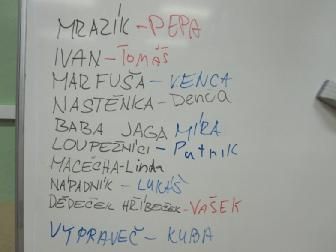 MRAZÍK - PEPA
IVAN - Tomáš
MARFUŠA - VENCA
NASTĚNKA - Denča
BABA JAGA MÍRA
LOUPEŽNÍCI - Patrik
MACECHA - Linda
NÁPADNÍK - LUKÁŠ
DĚDEČEK HŘÍBEČEK - VAŠEK
VYPRAVĚČ - KUBA